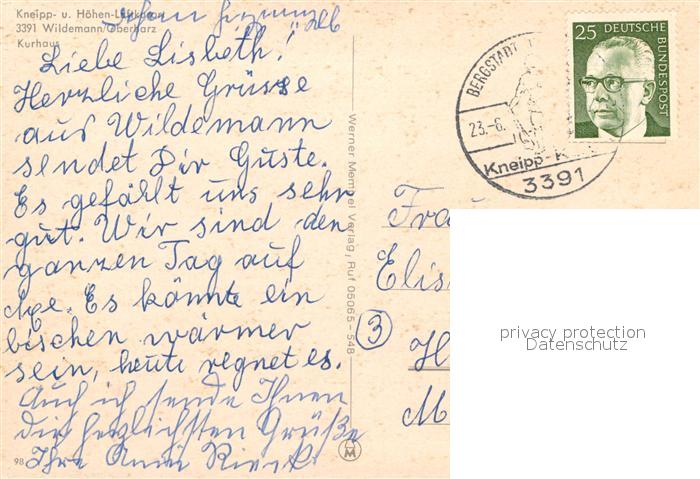 Kneipp- u. Höhen-Luftkurort
3391 Wildemann/Oberharz
Kurhaus
Liebe Lisbeth!
Herzliche Grüsse
aus Wildemann
sendet Dir Guste.
Es gefällt uns sehr
gut. Wir sind den
ganzen Tag auf
Es könnte ein
bischen wärmer
sein, heute regnet es.
Auch ich sende Ihnen
die herzlichsten Grüße
Ihre Anni
98
Werner Mempel Verlag, Ruf 05065-548
M
BERGSTADT
23.-6.
Kneipp-K
3391
25 DEUTSCHE
BUNDESPOST
Fra
Elis
3
H
M
privacy protection
Datenschutz